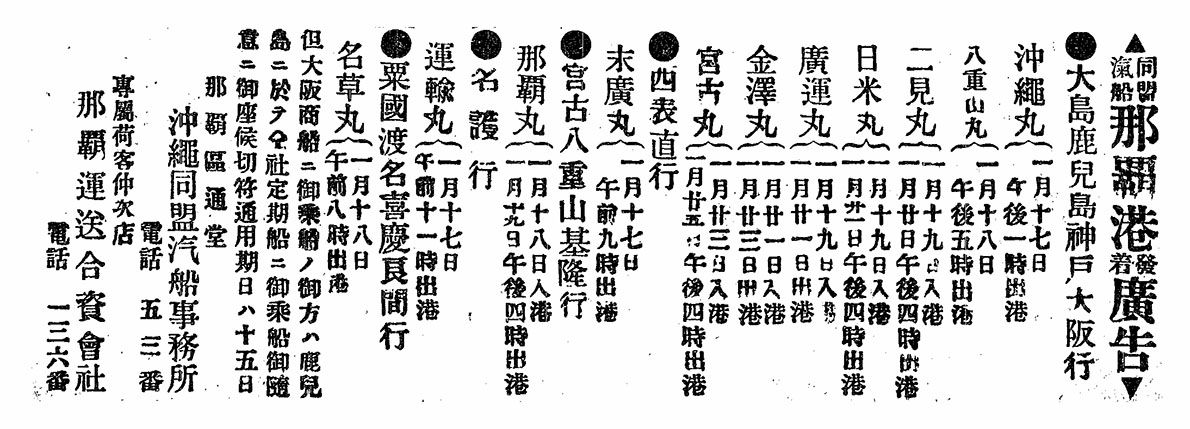 ▲同盟滊船那覇港發着廣告▼
●大島鹿兒島神戸大阪行
沖繩丸 一月十七日
午後一時出港
八重山丸 一月十八日
午後五時出港
二見丸 一月十九日入港
一月廿日午後四時出港
日米丸 一月十九日入港
一月廿一日午後四時出港
廣運丸 一月十九日入港
一月廿一日出港
金澤丸 一月廿一日入港
一月廿三日出港
宮古丸 一月廿三日入港
一月廿五日午後四時出港
●西表直行
末廣丸 一月十七日
午前九時出港
●宮古八重山基隆行
那覇丸 一月十八日入港
一月十九日午後四時出港
●名護行
運輸丸 一月十七日
午前十一時出港
●粟國渡名喜慶良間行
名草丸 一月十八日
午前八時出港
但大阪商船ニ御乘船ノ御方ハ鹿兒
島ニ於テ仝社定期船ニ御乘船御隨
意ニ御座候切符通用期日ハ十五日
那覇區通堂
沖繩同盟汽船事務所
電話 五三番
專屬荷客仲次店
那覇運送合資會社
電話 一三六番